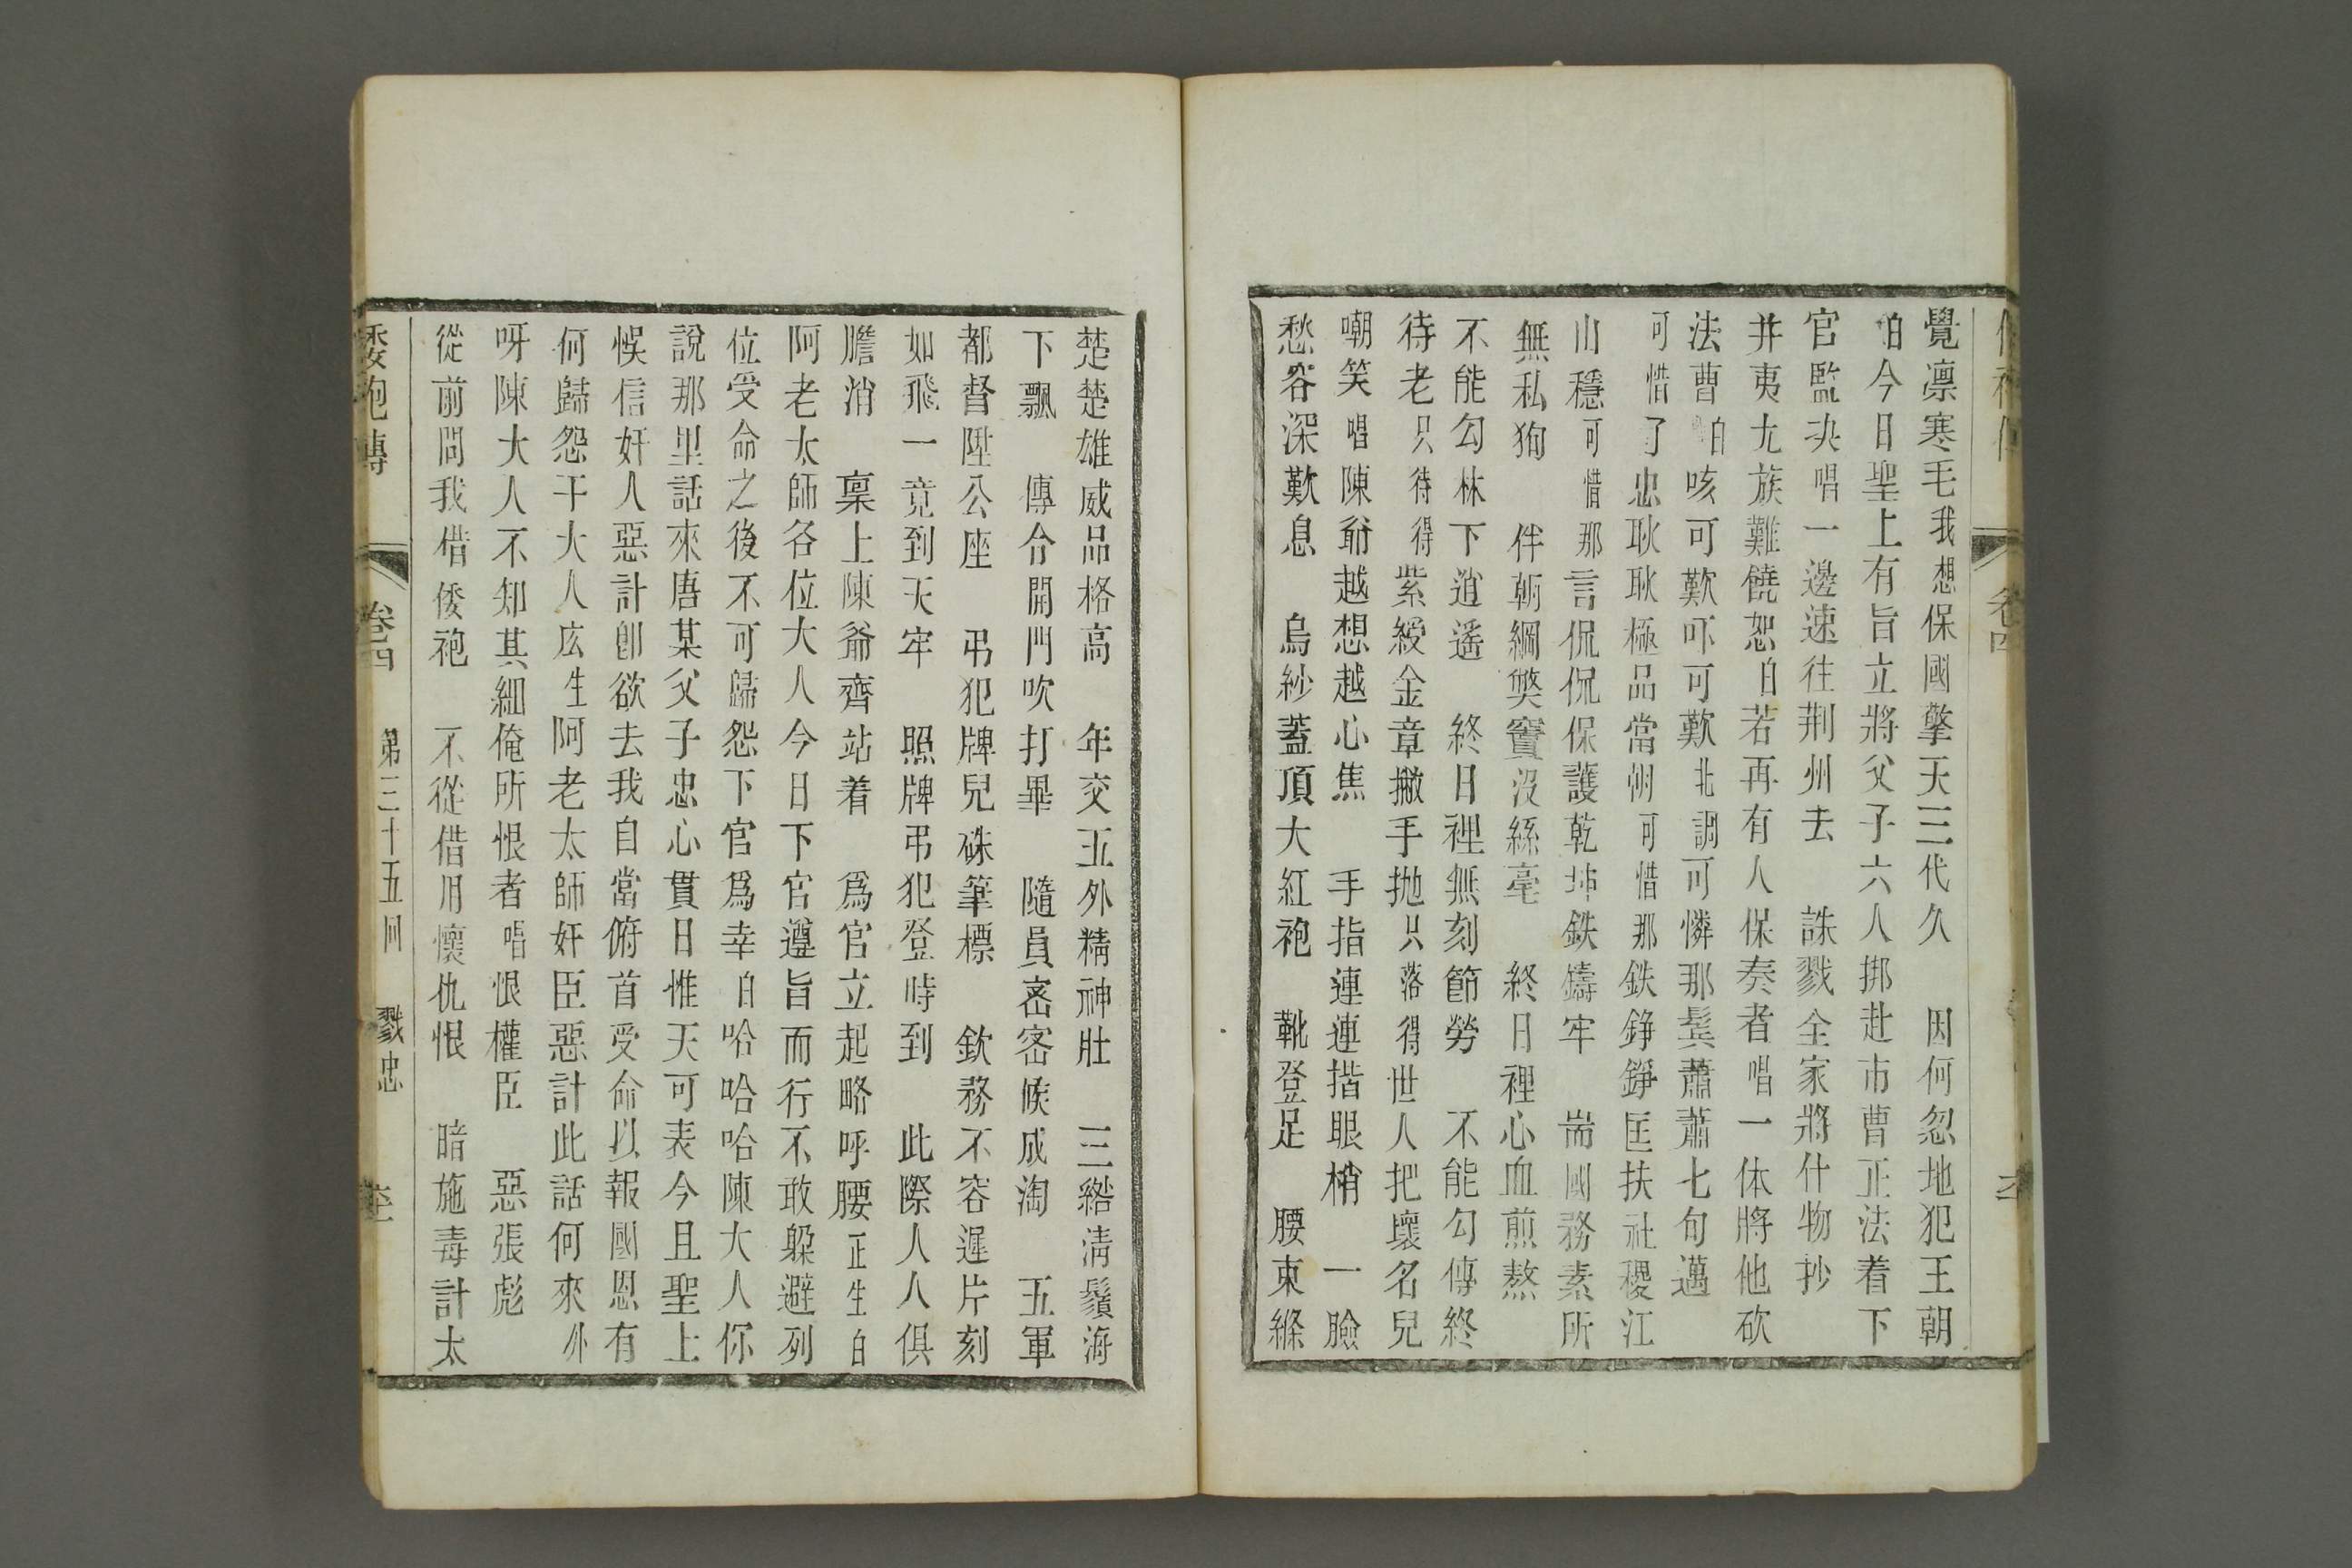 覺凛寒毛我想保國擎天三代久　因何忽地犯王朝
怕今日聖上有旨立將父子六人挷赴市曹正法着下
官監决唱一邊速往荆州去　誅戮全家將什物抄
并夷九族難饒恕白若再有人保奏者唱一体將他砍
法曹咳可歎吓可歎北調可憐那鬂蕭蕭七旬邁
可惜了忠耿耿極品當朝可惜那鉄錚錚匡扶社稷江
山穩可惜那言侃侃保護乾坤鉄鑄牢　耑國務素所
無私狥　伴朝綱獘竇沒絲毫　終日裡心血煎熬
不能勾林下逍遙　終日裡無刻節勞　不能勾傳終
待老只待得紫綬金章撇手抛只落得世人把壞名兒
嘲笑唱陳爺越想越心焦　手指連連揩眼梢　一臉
愁容深歎息　烏紗蓋頂大紅袍　靴登足　腰束縧
楚楚雄威品格高　年交五外精神壯　三綹清鬚海
下飄　傳令開門吹打畢　隨員密密候成淘　五軍
都督陞公座　弔犯牌兒硃筆標　欽務不容遲片刻
如飛一竟到天牢　照牌弔犯登時到　此際人人俱
膽消　稟上陳爺齊站着　爲官立起略呼腰正生白
阿老太師各位大人今日下官遵旨而行不敢躱避列
位受命之後不可歸怨下官爲幸白哈哈哈陳大人你
說那里話來唐某父子忠心貫日惟天可表今且聖上
悞信奸人惡計卽欲去我自當俯首受命以報國恩有
何歸怨干大人庅生阿老太師奸臣惡計此話何來外
呀陳大人不知其細俺所恨者唱恨權臣　惡張彪
從前問我借倭袍　不從借用懷仇恨　暗施毒計太
倭袍傳　卷四　第三十五回　戮忠